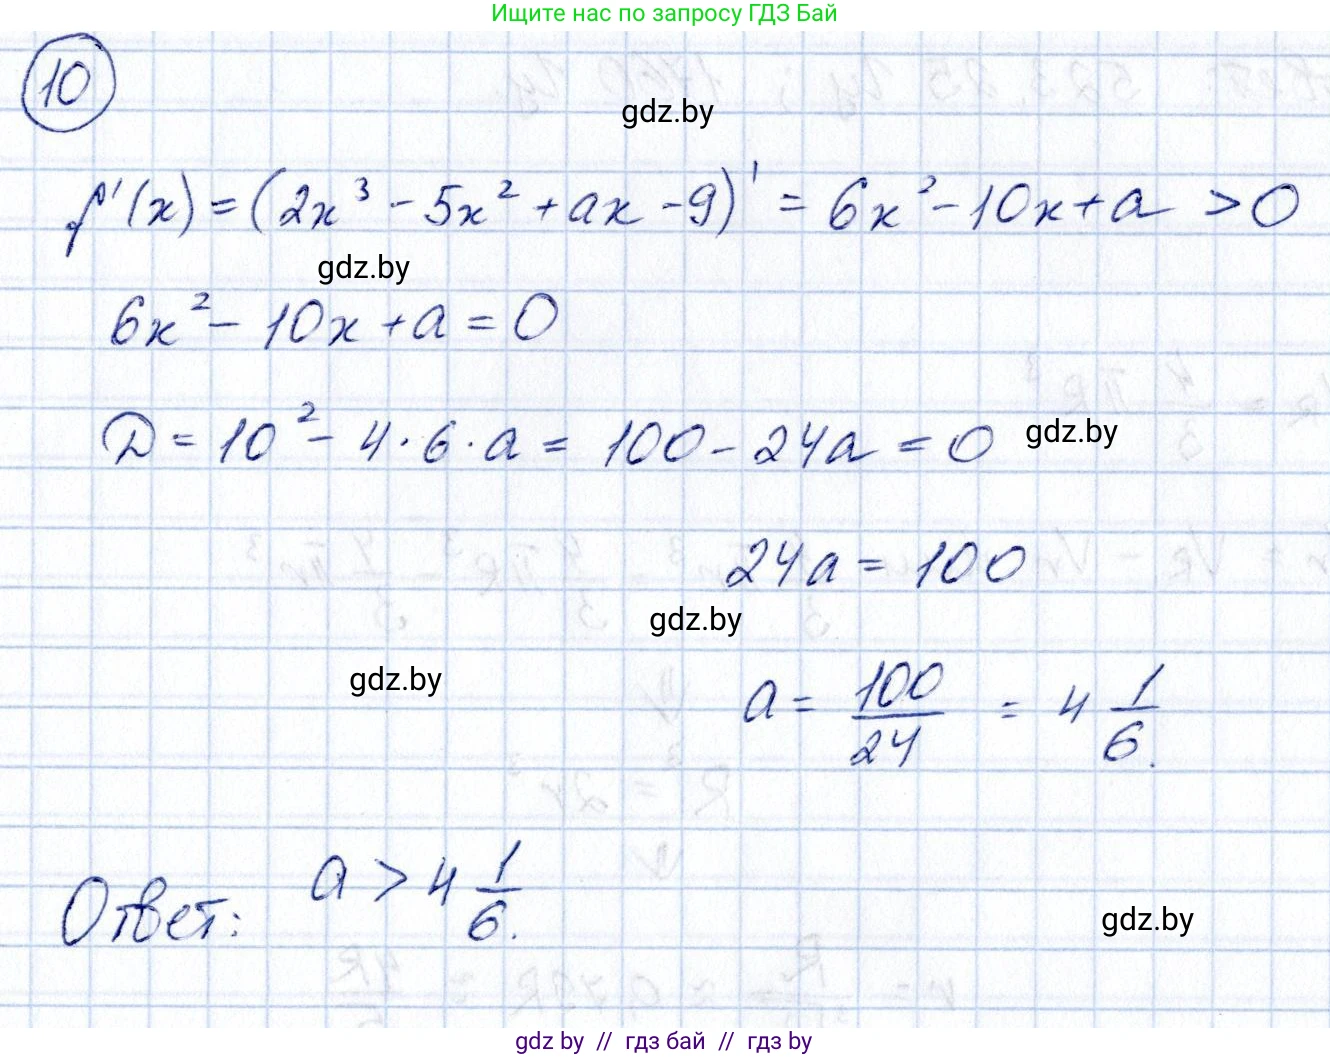 Ищите нас по запросу ГДЗ Бай
10
gdz.by
f'(x) = (2x³ - 5x² + ax - 9)' = 6x² - 10x + a > 0
gdz.by
6x² - 10x + a = 0
D = 10² - 4 · 6 · a = 100 - 24a = 0
gdz.by
24a = 100
gdz.by
gdz.by
a = 100/24 = 4 1/6.
Ответ: a > 4 1/6.
gdz.by
gdz by // гдз бай // гдз by